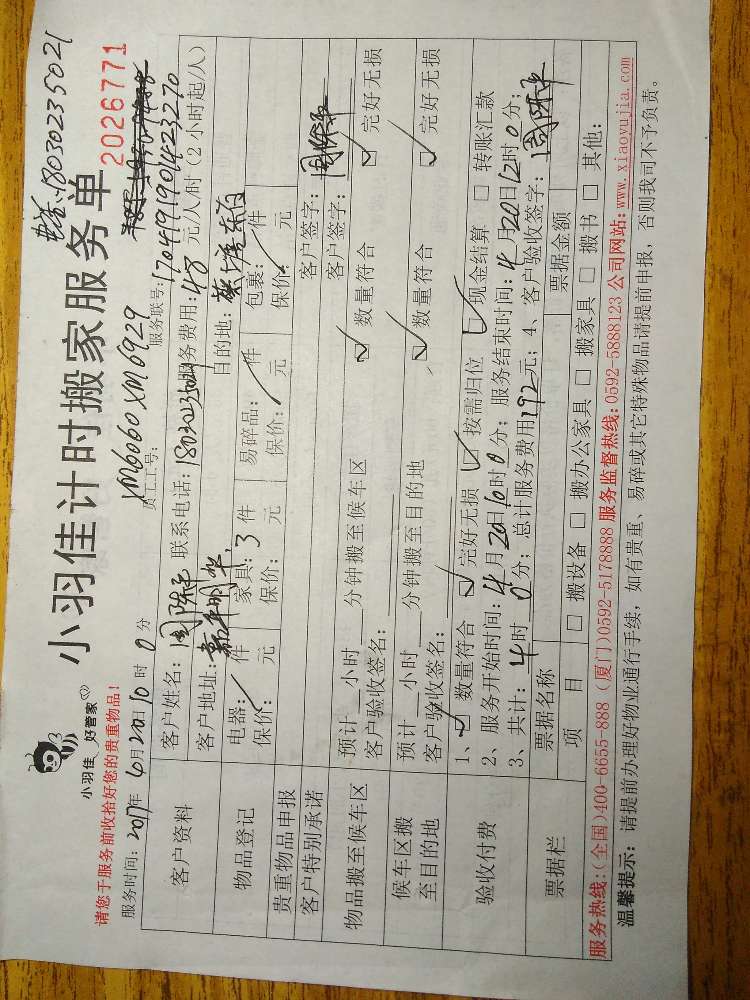 电话:18030235021
小羽佳 好管家
小羽佳计时搬家服务单
2026771
请您于服务前收拾好您的贵重物品!
XM6060 XM6929
服务时间: 2017年 4月20日10时0分 员工工号: 服务联号: 1704191904223270
客户资料 客户姓名: 周陈平 联系电话: 18030235021 服务费用: 48 元/人/时(2小时起/人)
客户地址: 目的地:
物品登记 电器: / 件 家具: 3 件 易碎品: / 件 包裹: / 件
保价: 元 保价: 元 保价: / 元 保价: / 元
贵重物品申报 客户签字:
客户特别承诺 客户签字: 周陈平
物品搬至候车区 预计___小时___分钟搬至候车区 ☑ 数量符合 ☑ 完好无损
客户验收签名:
候车区搬至目的地 预计___小时___分钟搬至目的地 ☑ 数量符合 ☑ 完好无损
客户验收签名:
验收付费 1、☑ 数量符合 ☑ 完好无损 ☑ 按需归位 ☑ 现金结算 □ 转账汇款
2、服务开始时间: 4月20日10时0分; 服务结束时间: 4月20日12时0分;
3、共计: 4时0分; 总计服务费用192元; 4、客户验收签字: 周陈平
票据栏 票据名称 票据金额
项 目 □ 搬设备 □ 搬办公家具 □ 搬家具 □ 搬书 □ 其他:
服务热线:(全国)400-6655-888 (厦门)0592-5178888 服务监督热线: 0592-5888123 公司网站: www.xiaoyujia.com
温馨提示: 请提前办理好物业通行手续, 如有贵重、易碎或其它特殊物品请提前申报, 否则我司不予负责。